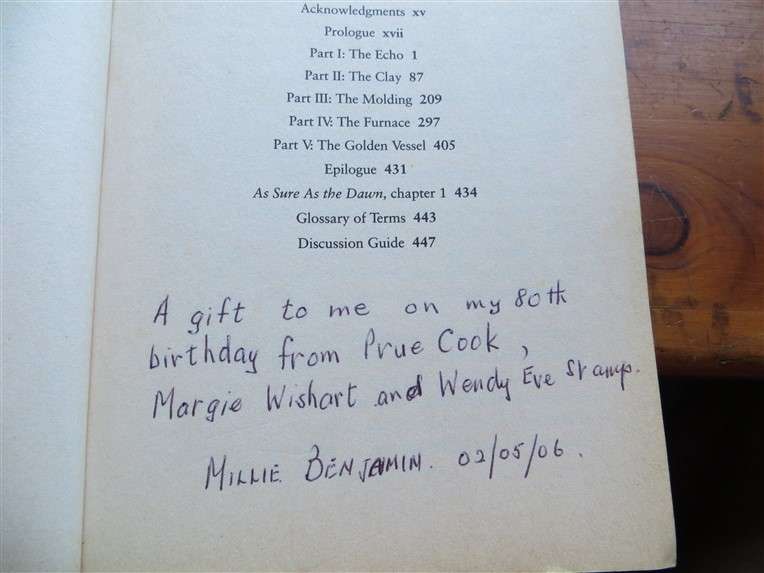 Acknowledgments xv
Prologue xvii
Part I: The Echo 1
Part II: The Clay 87
Part III: The Molding 209
Part IV: The Furnace 297
Part V: The Golden Vessel 405
Epilogue 431
As Sure As the Dawn, chapter 1 434
Glossary of Terms 443
Discussion Guide 447
A gift to me on my 80th
birthday from Prue Cook,
Margie Wishart and Wendy Eve Stamp.
MILLIE BENJAMIN. 02/05/06.